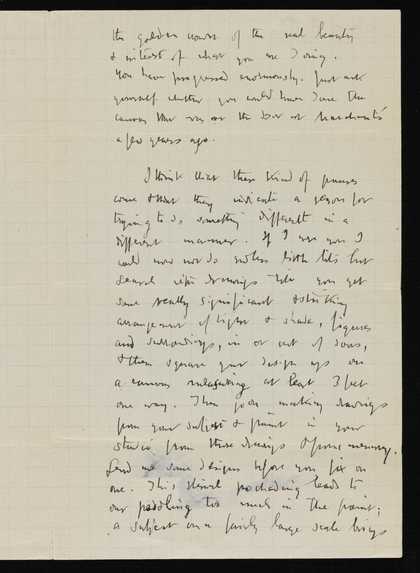 the golden nowist of the real beauty
& interest of what you are doing.
You have progressed enormously. Just ask
yourself whether you could have done the
canvas that was on the door at
a few years ago.
I think that these kind of pauses
come & that they indicate a reason for
trying to do something different in a
different manner. If I were you I
would now not do endless little bits but
search with drawings till you get
some really significant & striking
arrangement of lights & shade, figures
and surroundings, in or out of doors,
& then square your design up on
a canvas measuring at least 3 feet
one way. Then go on making drawings
from your subject & paint in your
studio from these drawings & from memory.
Send me some designs before you fix on
one. This eternal pochading leads to
our paddling too much in the paint;
a subject on a fairly large scale brings